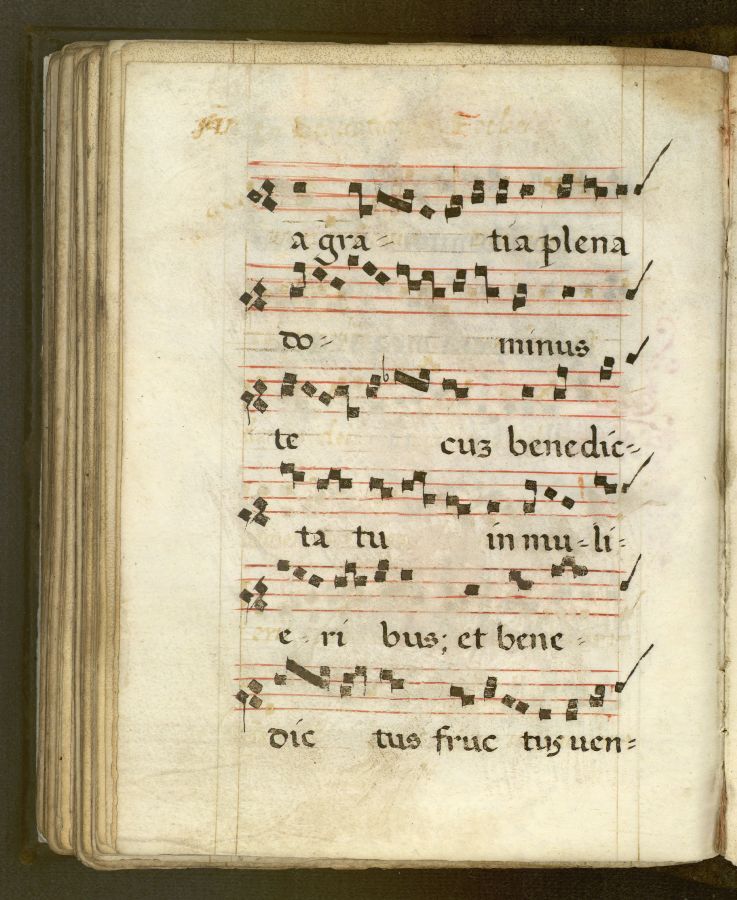 a gra- tia plena
do- minus
te cuz benedic-
ta tu in mu-li-
e-ri bus; et bene-
dic tus fruc tus uen-